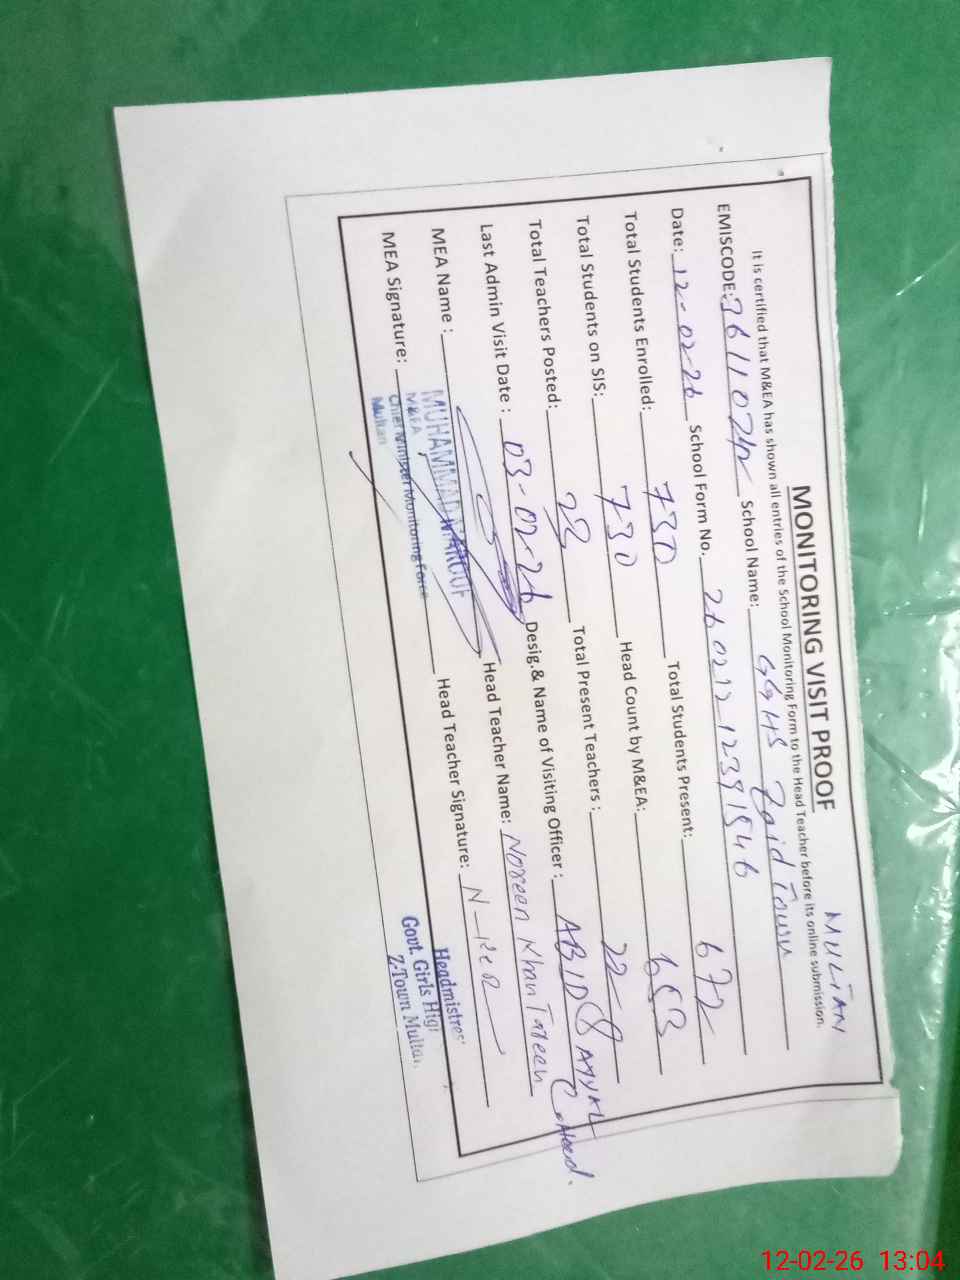 MONITORING VISIT PROOF
It is certified that M&EA has shown all entries of the School Monitoring Form to the Head Teacher before its online submission.
EMISCODE: School Name: GGHS Zaid Town MULTAN
Date: 12-02-26 School Form No. 26021212391546
Total Students Enrolled: 730 Total Students Present: 672
Total Students on SIS: 730 Head Count by M&EA: 653
Total Teachers Posted: 23 Total Present Teachers: 22
Last Admin Visit Date: 03-02-26 Desig.& Name of Visiting Officer: ABID
MEA Name: MUHAMMAD MAROOF Head Teacher Name: Noreen Khan Tareen
M&EA
Chief Minister Monitoring Force
Multan
MEA Signature: Head Teacher Signature:
Headmistres
Govt. Girls Hig
Z-Town Multa
12-02-26 13:04